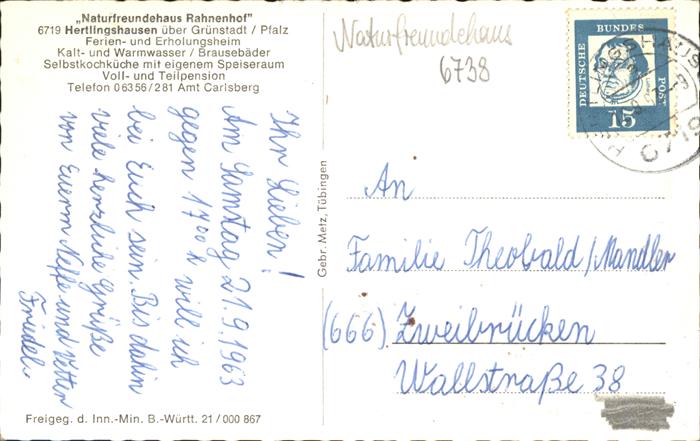 „Naturfreundehaus Rahnenhof"
6719 Hertlingshausen über Grünstadt / Pfalz
Ferien- und Erholungsheim
Kalt- und Warmwasser / Brausebäder
Selbstkochküche mit eigenem Speiseraum
Voll- und Teilpension
Telefon 06356/281 Amt Carlsberg
Naturfreundehaus
6738
DEUTSCHE
BUNDES
POST
15
6719
Ihr Lieben!
Am Samstag 21.9.1963
gegen 17ºº h will ich
bei Euch sein. Bis dahin
viele herzliche Grüße
von Euerm Neffe und Vetter
Friedel.
Gebr. Metz, Tübingen
An
Familie Theobald/Mandler
(666) Zweibrücken
Wallstraße 38
Freigeg. d. Inn.-Min. B.-Württ. 21/000 867